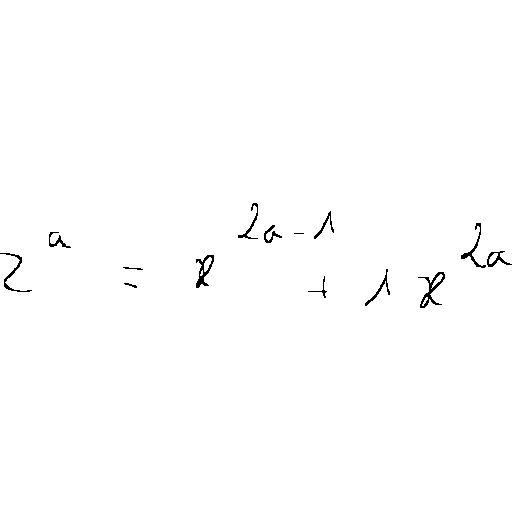 z^a = x^{2a-1} + 1 x^{2a}